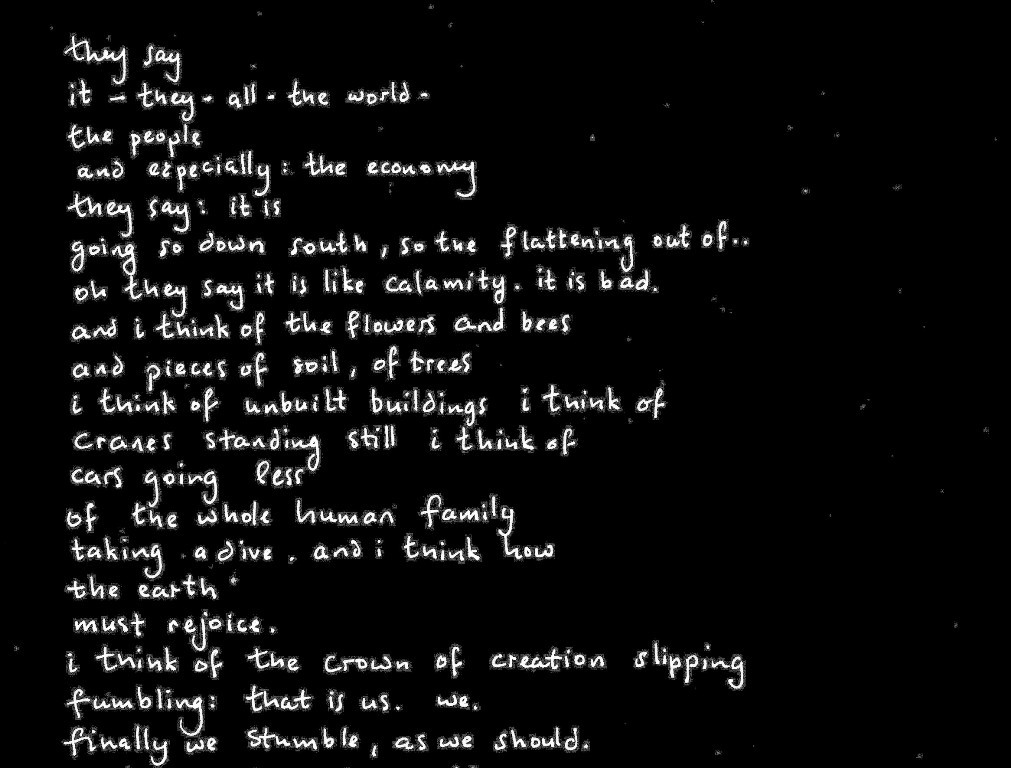 they say
it - they - all - the world -
the people
and especially: the economy
they say: it is
going so down south, so the flattening out of..
oh they say it is like calamity. it is bad.
and i think of the flowers and bees
and pieces of soil, of trees
i think of unbuilt buildings i think of
cranes standing still i think of
cars going less
of the whole human family
taking a dive. and i think how
the earth
must rejoice.
i think of the crown of creation slipping
fumbling: that is us. we.
finally we stumble, as we should.